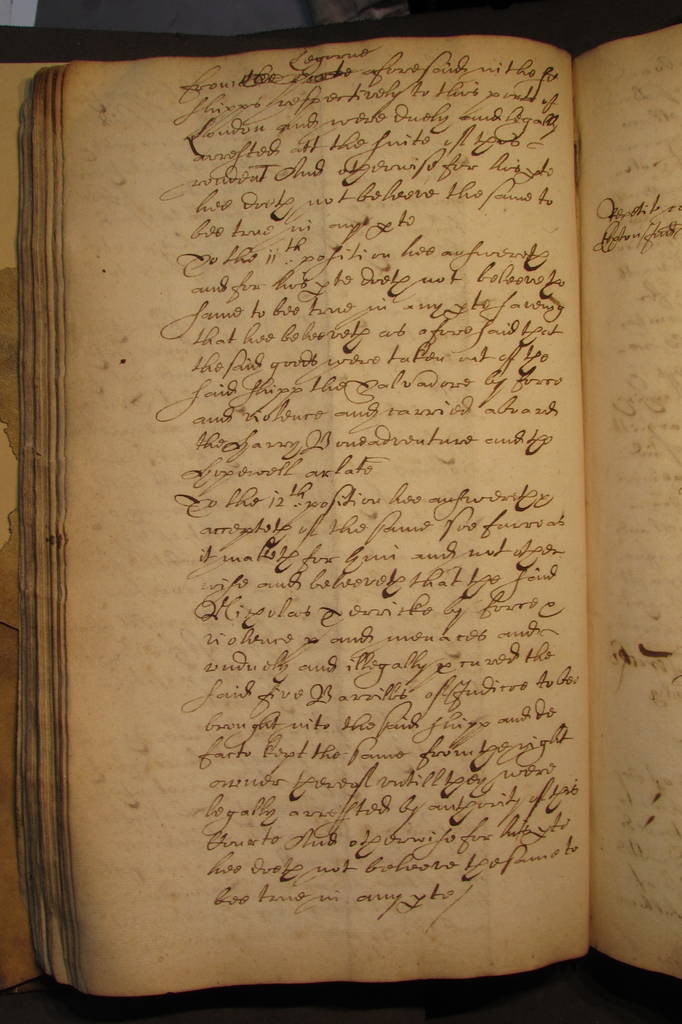 Legorne
from the Porte aforesaid in the sd
shipps respectively to this porte of
London and were duely and legally
arrested att the suite of this
rendent And otherwise for his pte
hee doth not beleeve the same to
bee true in any pte
To the 11th. position hee answereth
and for his pte doth not beleeve the
same to bee true in any pte saveing
that hee beleeveth as aforesaid that
the said goods were taken out of the
said shipp the Salvadore by force
and violence and carried aboard
the Harry Boneadventure and the
Hopewell arlate
To the 12th. position hee answereth
accepteth of the same soe farre as
it maketh for him and not other
wise and beleeveth that the said
Nicholas Terricke by force
violence and menaces and
unduely and illegally pcured the
said five Barrills of Indicoe to bee
brought into the said shipp and de
facto kept the same from the right
owner thereof untill they were
legally arrested by authority of this
Courte And otherwise for his pte
hee doth not beleeve the same to
bee true in any pte /
Repetit